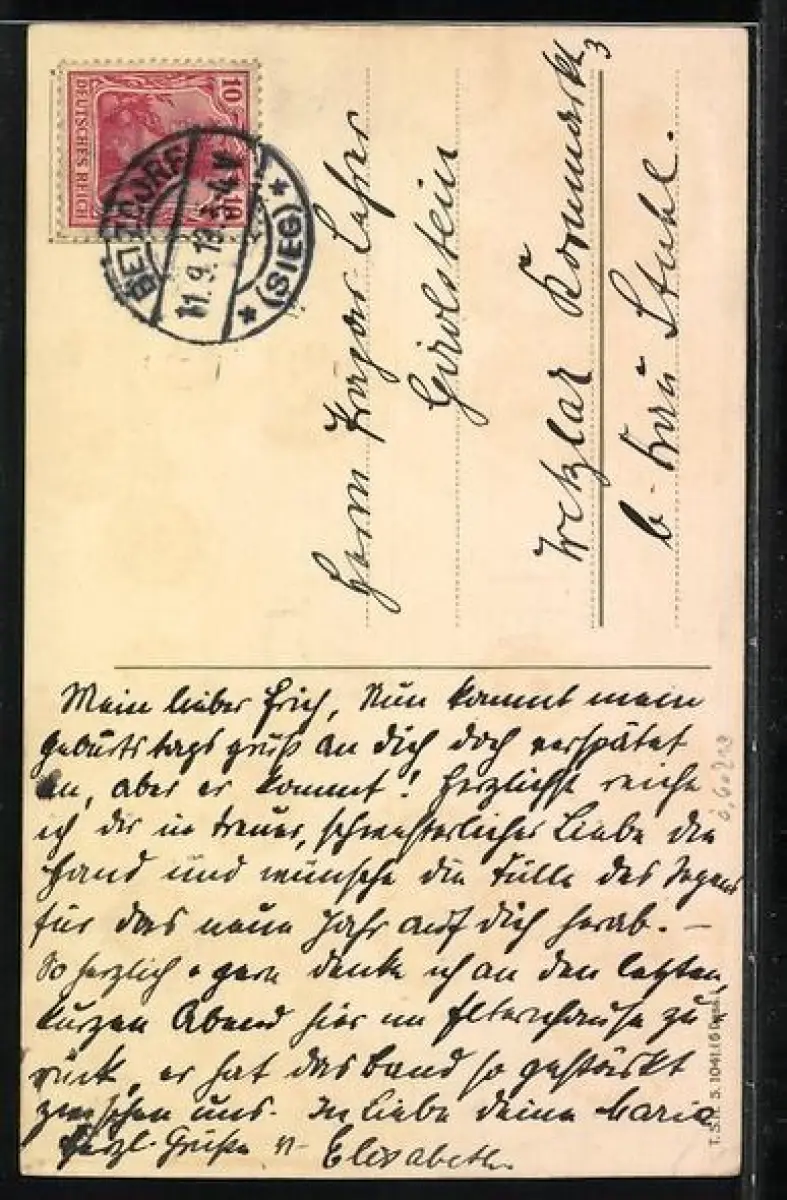 10
DEUTSCHES REICH
10
BETZDORF
11.9.19. 3-4 N
* (SIEG) *
Herrn
Gerolstein
Wetzlar Kornmarkt 3
b. Frau Stuhl.
Mein lieber Erich, Nun kommt mein
Geburtstagsgruß an Dich doch verspätet
an, aber er kommt! Herzlichst reiche
ich dir in treuer, schwesterlicher Liebe die
Hand und wünsche die Fülle des Segens
für das neue Jahr auf dich herab. –
So herzlich u gern denke ich an den letzten,
kurzen Abend hier im Elternhause zu
rück, er hat das Band so gestärkt
zwischen uns. In Liebe deine Maria
Herzl. Grüße v. Elisabeth.